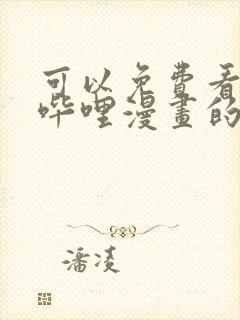 可以免费看
哔哩漫畫的
潘凌